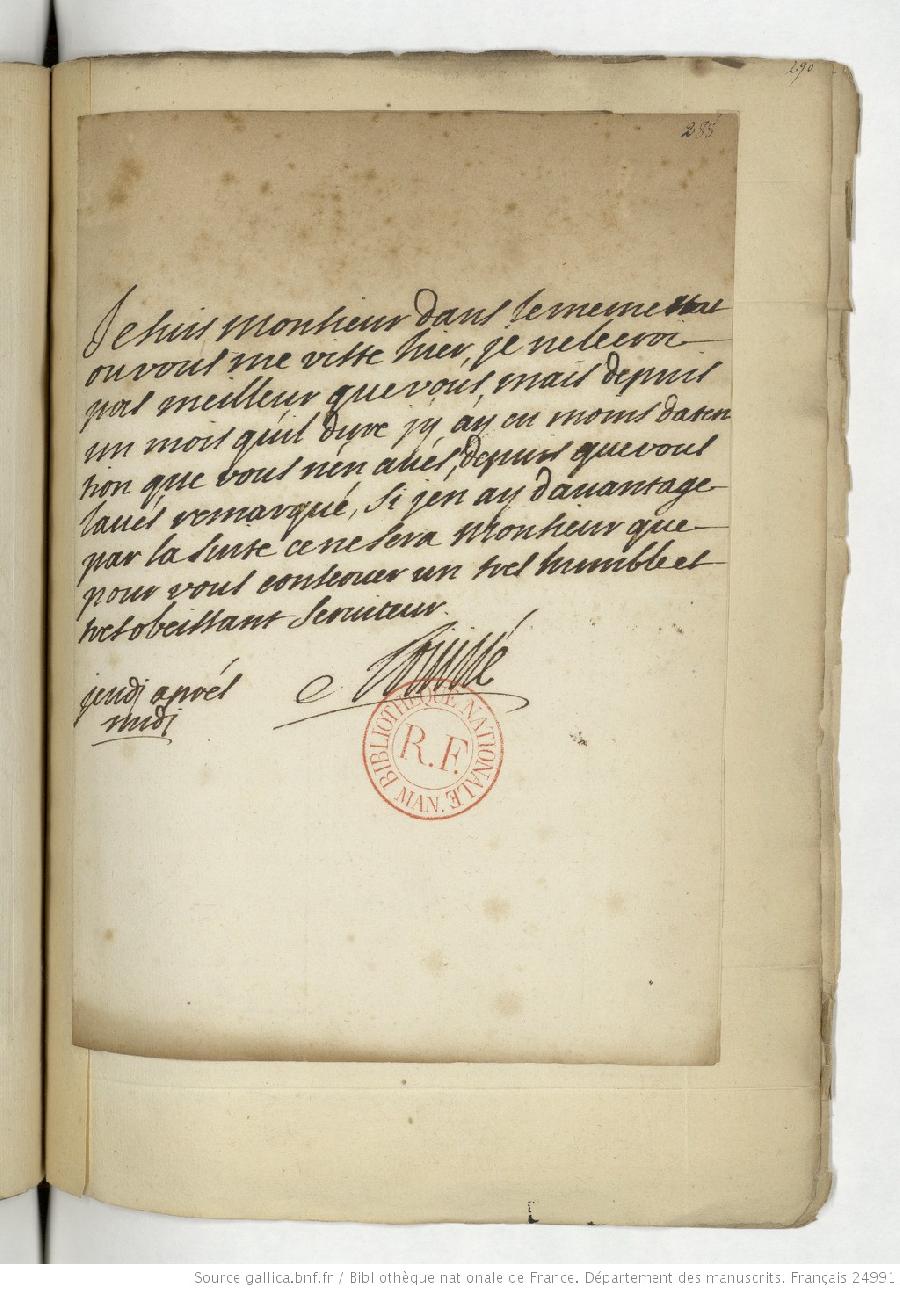 290
288
Je suis Monsieur dans le meme etat
ou vous me viste hier, je ne le croi
pas meilleur que vous, mais depuis
un mois qu'il dure j'y ay eu moins daten
tion que vous n'en avés, depuis que vous
lavés remarqué, si j'en ay davantage
par la suite ce ne sera Monsieur que
pour vous conserver un tres humble et
tres obeissant serviteur.
jeudj aprés
midj
BIBLIOTHEQUE NATIONALE
R.F.
MAN.
Source gallica.bnf.fr / Bibliothèque nationale de France. Département des manuscrits. Français 24991